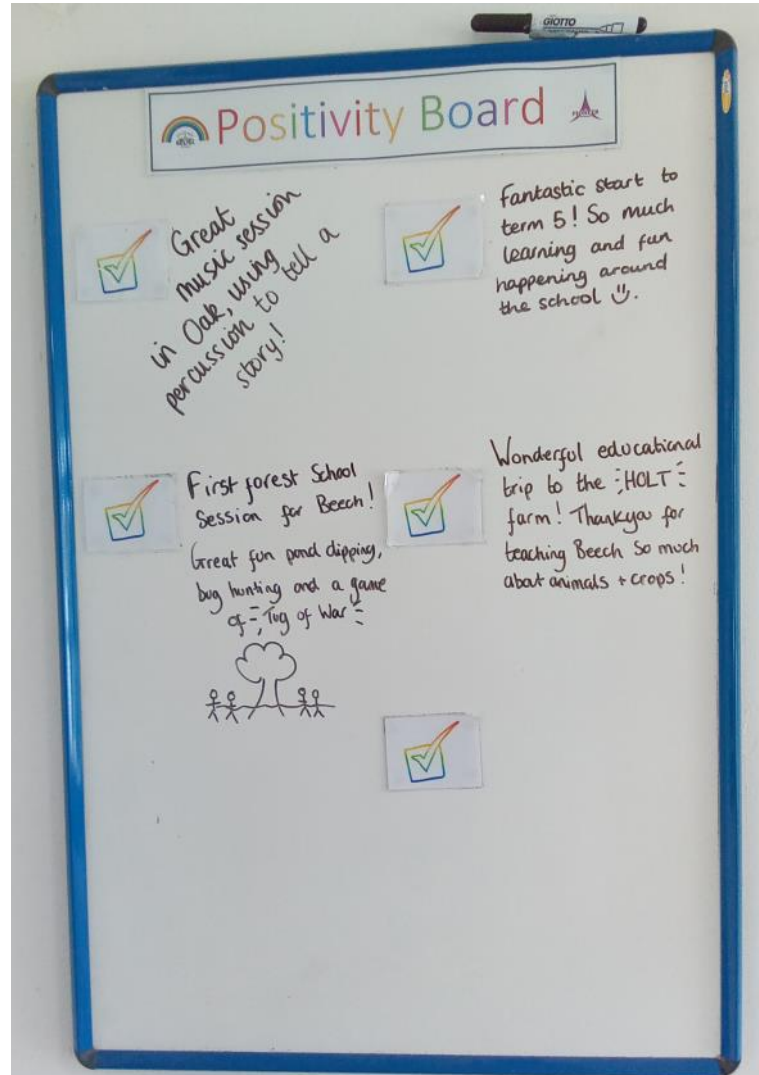 GIOTTO
Positivity Board
Great
music session
in Oak, using
percussion to tell a
story!
Fantastic start to
term 5! So much
learning and fun
happening around
the school
First forest School
Session for Beech!
Great fun pond dipping,
bug hunting and a game
of Tug of War
Wonderful educational
trip to the HOLT
farm! Thankyou for
teaching Beech So much
about animals + crops!